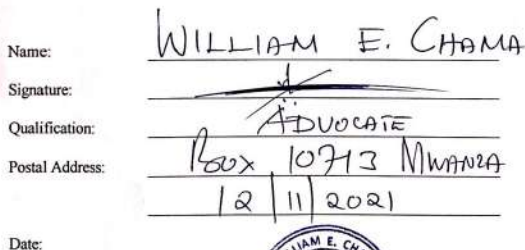 Name: WILLIAM E. CHAMA
Signature:
Qualification: ADVOCATE
Postal Address: BOX 10713 MWANZA
12 | 11 | 2021
Date:
WILLIAM E. CH